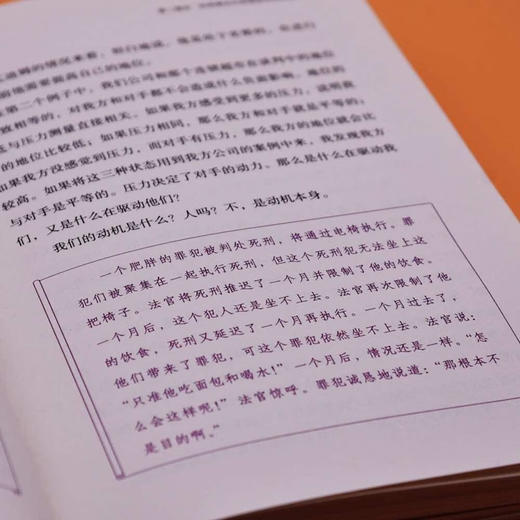 地需要提高自己的地位。
第二个例子中，我们公司和那个连锁超市在谈判中的地位
致相等的，对我方和对手都不会造成什么负面影响。地位的
低与压力测量直接相关。如果我方感受到更多的压力，说明我
的地位比较低；如果压力相同，那么我方和对手就是平等的；
如果我方没感觉到压力，而对手有压力，那么我方的地位就会比
较高。如果将这三种状态用到我方公司的案例中来，我发现我方
与对手是平等的。压力决定了对手的动力。那么是什么在驱动我
们，又是什么在驱动他们？
我们的动机是什么？人吗？不，是动机本身。
一个肥胖的罪犯被判处死刑，将通过电椅执行。罪
犯们被聚集在一起执行死刑，但这个死刑犯无法坐上这
把椅子。法官将死刑推迟了一个月并限制了他的饮食。
一个月后，这个犯人还是坐不上去。法官再次限制了他
的饮食，死刑又延迟了一个月再执行。一个月过去了，
他们带来了罪犯，可这个罪犯依然坐不上去。法官说：
“只准他吃面包和喝水！”一个月后，情况还是一样。“怎
么会这样呢！”法官惊呼。罪犯诚恳地说道：“那根本不
是目的啊。”